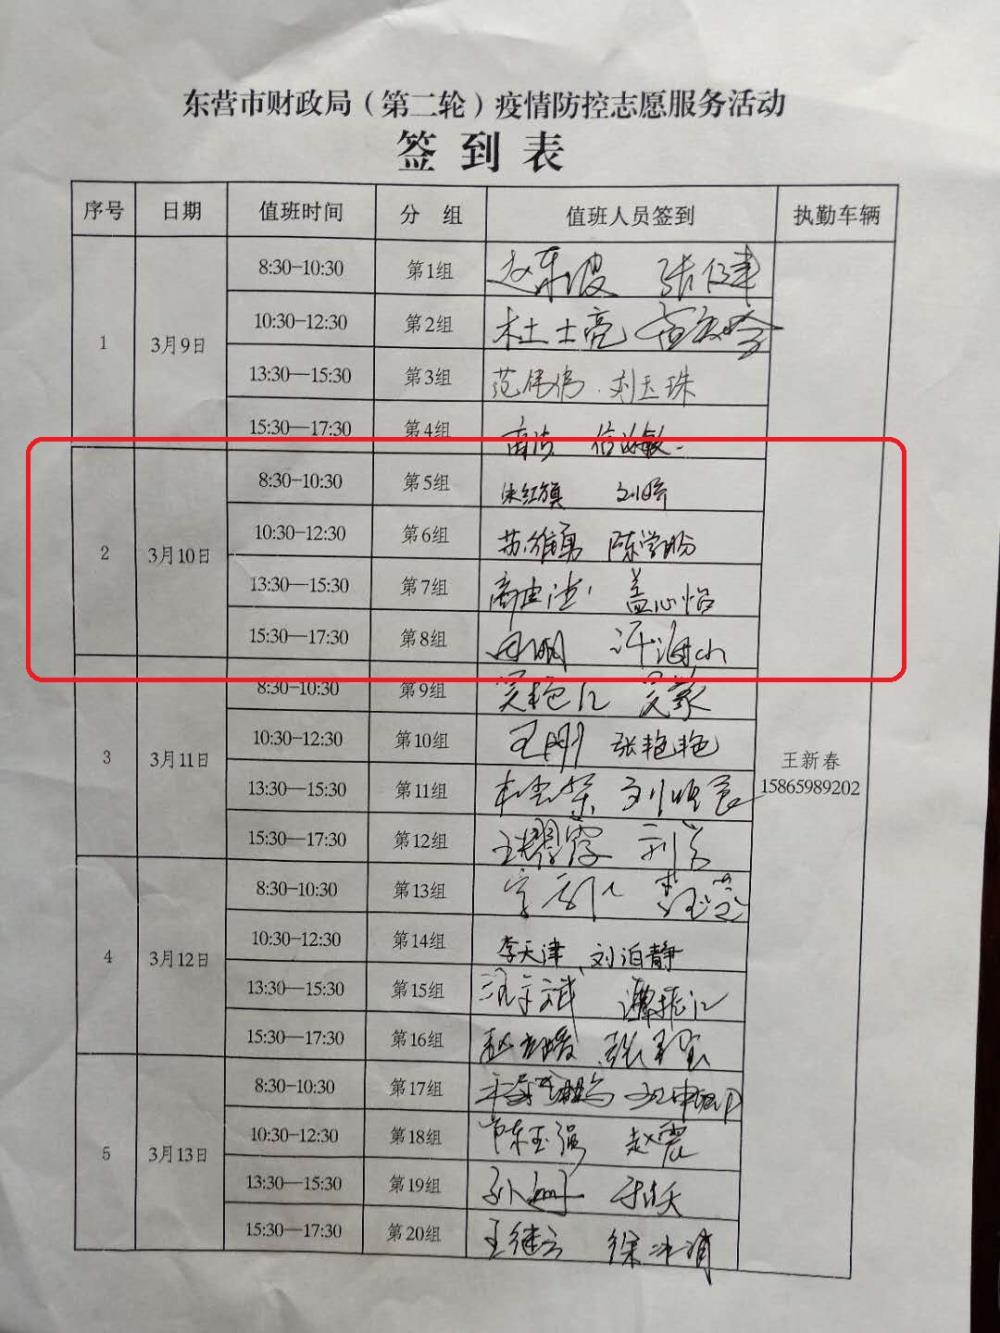 东营市财政局（第二轮）疫情防控志愿服务活动
签到表
序号 日期 值班时间 分 组 值班人员签到 执勤车辆
8:30-10:30 第1组 赵东波 张传聿
10:30-12:30 第2组 杜士亮
1 3月9日
13:30—15:30 第3组 范伟伟 刘玉珠
15:30-17:30 第4组 商洁 信敏
8:30-10:30 第5组 朱红旗 刘晓
10:30-12:30 第6组 苏维勇 陈学盼
2 3月10日
13:30—15:30 第7组 商建波 盖心怡
15:30-17:30 第8组 周鹏
8:30-10:30 第9组 吴艳红 吴蒙
10:30-12:30 第10组 王刚 张艳艳
3 3月11日 王新春
13:30—15:30 第11组 15865989202
15:30-17:30 第12组 王耀霞 刘芳
8:30-10:30 第13组
10:30-12:30 第14组 李天津、刘泊静
4 3月12日
13:30—15:30 第15组 谭振江
15:30-17:30 第16组
8:30-10:30 第17组
10:30-12:30 第18组 常玉强 赵震
5 3月13日
13:30—15:30 第19组
15:30-17:30 第20组 王继云 徐冰清